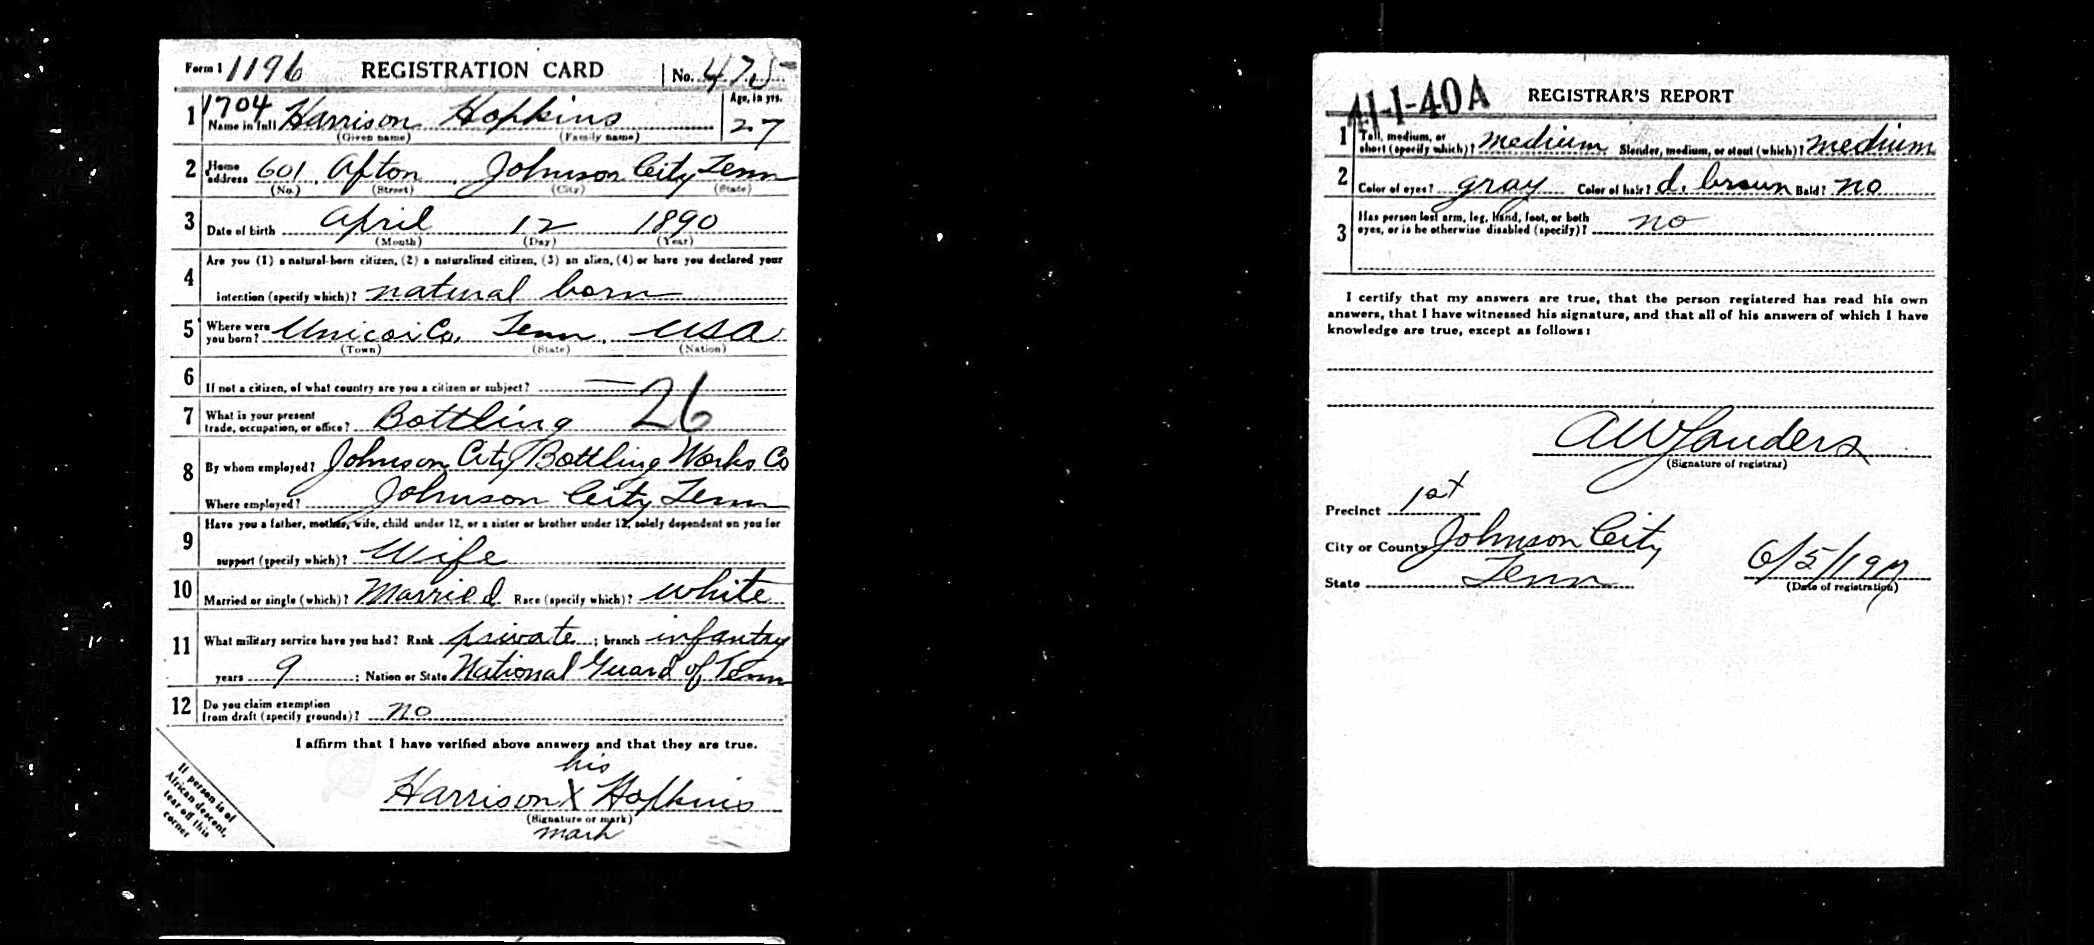 Form 1 1196 REGISTRATION CARD No. 475
1 1704 Name in full Harrison Hopkins Age, in yrs. 27
(Given name) (Family name)
2 Home address 601 Afton Johnson City Tenn
(No.) (Street) (City) (State)
3 Date of birth April 12 1890
(Month) (Day) (Year)
4 Are you (1) a natural-born citizen, (2) a naturalized citizen, (3) an alien, (4) or have you declared your
intention (specify which)? natural born
5 Where were you born? Unicoi Co. Tenn. USA
(Town) (State) (Nation)
6 If not a citizen, of what country are you a citizen or subject? —
26
7 What is your present trade, occupation, or office? Bottling
8 By whom employed? Johnson City Bottling Works Co
Where employed? Johnson City Tenn
9 Have you a father, mother, wife, child under 12, or a sister or brother under 12, solely dependent on you for
support (specify which)? Wife
10 Married or single (which)? Married Race (specify which)? white
11 What military service have you had? Rank private ; branch infantry
years 9 ; Nation or State National Guard of Tenn
12 Do you claim exemption from draft (specify grounds)? no
I affirm that I have verified above answers and that they are true.
his
Harrison X Hopkins
(Signature or mark)
mark
If person is of
African descent,
tear off this
corner
41-1-40 A REGISTRAR'S REPORT
1 Tall, medium, or short (specify which)? medium Slender, medium, or stout (which)? medium
2 Color of eyes? gray Color of hair? d. brown Bald? no
3 Has person lost arm, leg, hand, foot, or both eyes, or is he otherwise disabled (specify)? no
I certify that my answers are true, that the person registered has read his own
answers, that I have witnessed his signature, and that all of his answers of which I have
knowledge are true, except as follows:
A W Sanders
(Signature of registrar)
Precinct 1st
City or County Johnson City
State Tenn 6/5/1917
(Date of registration)